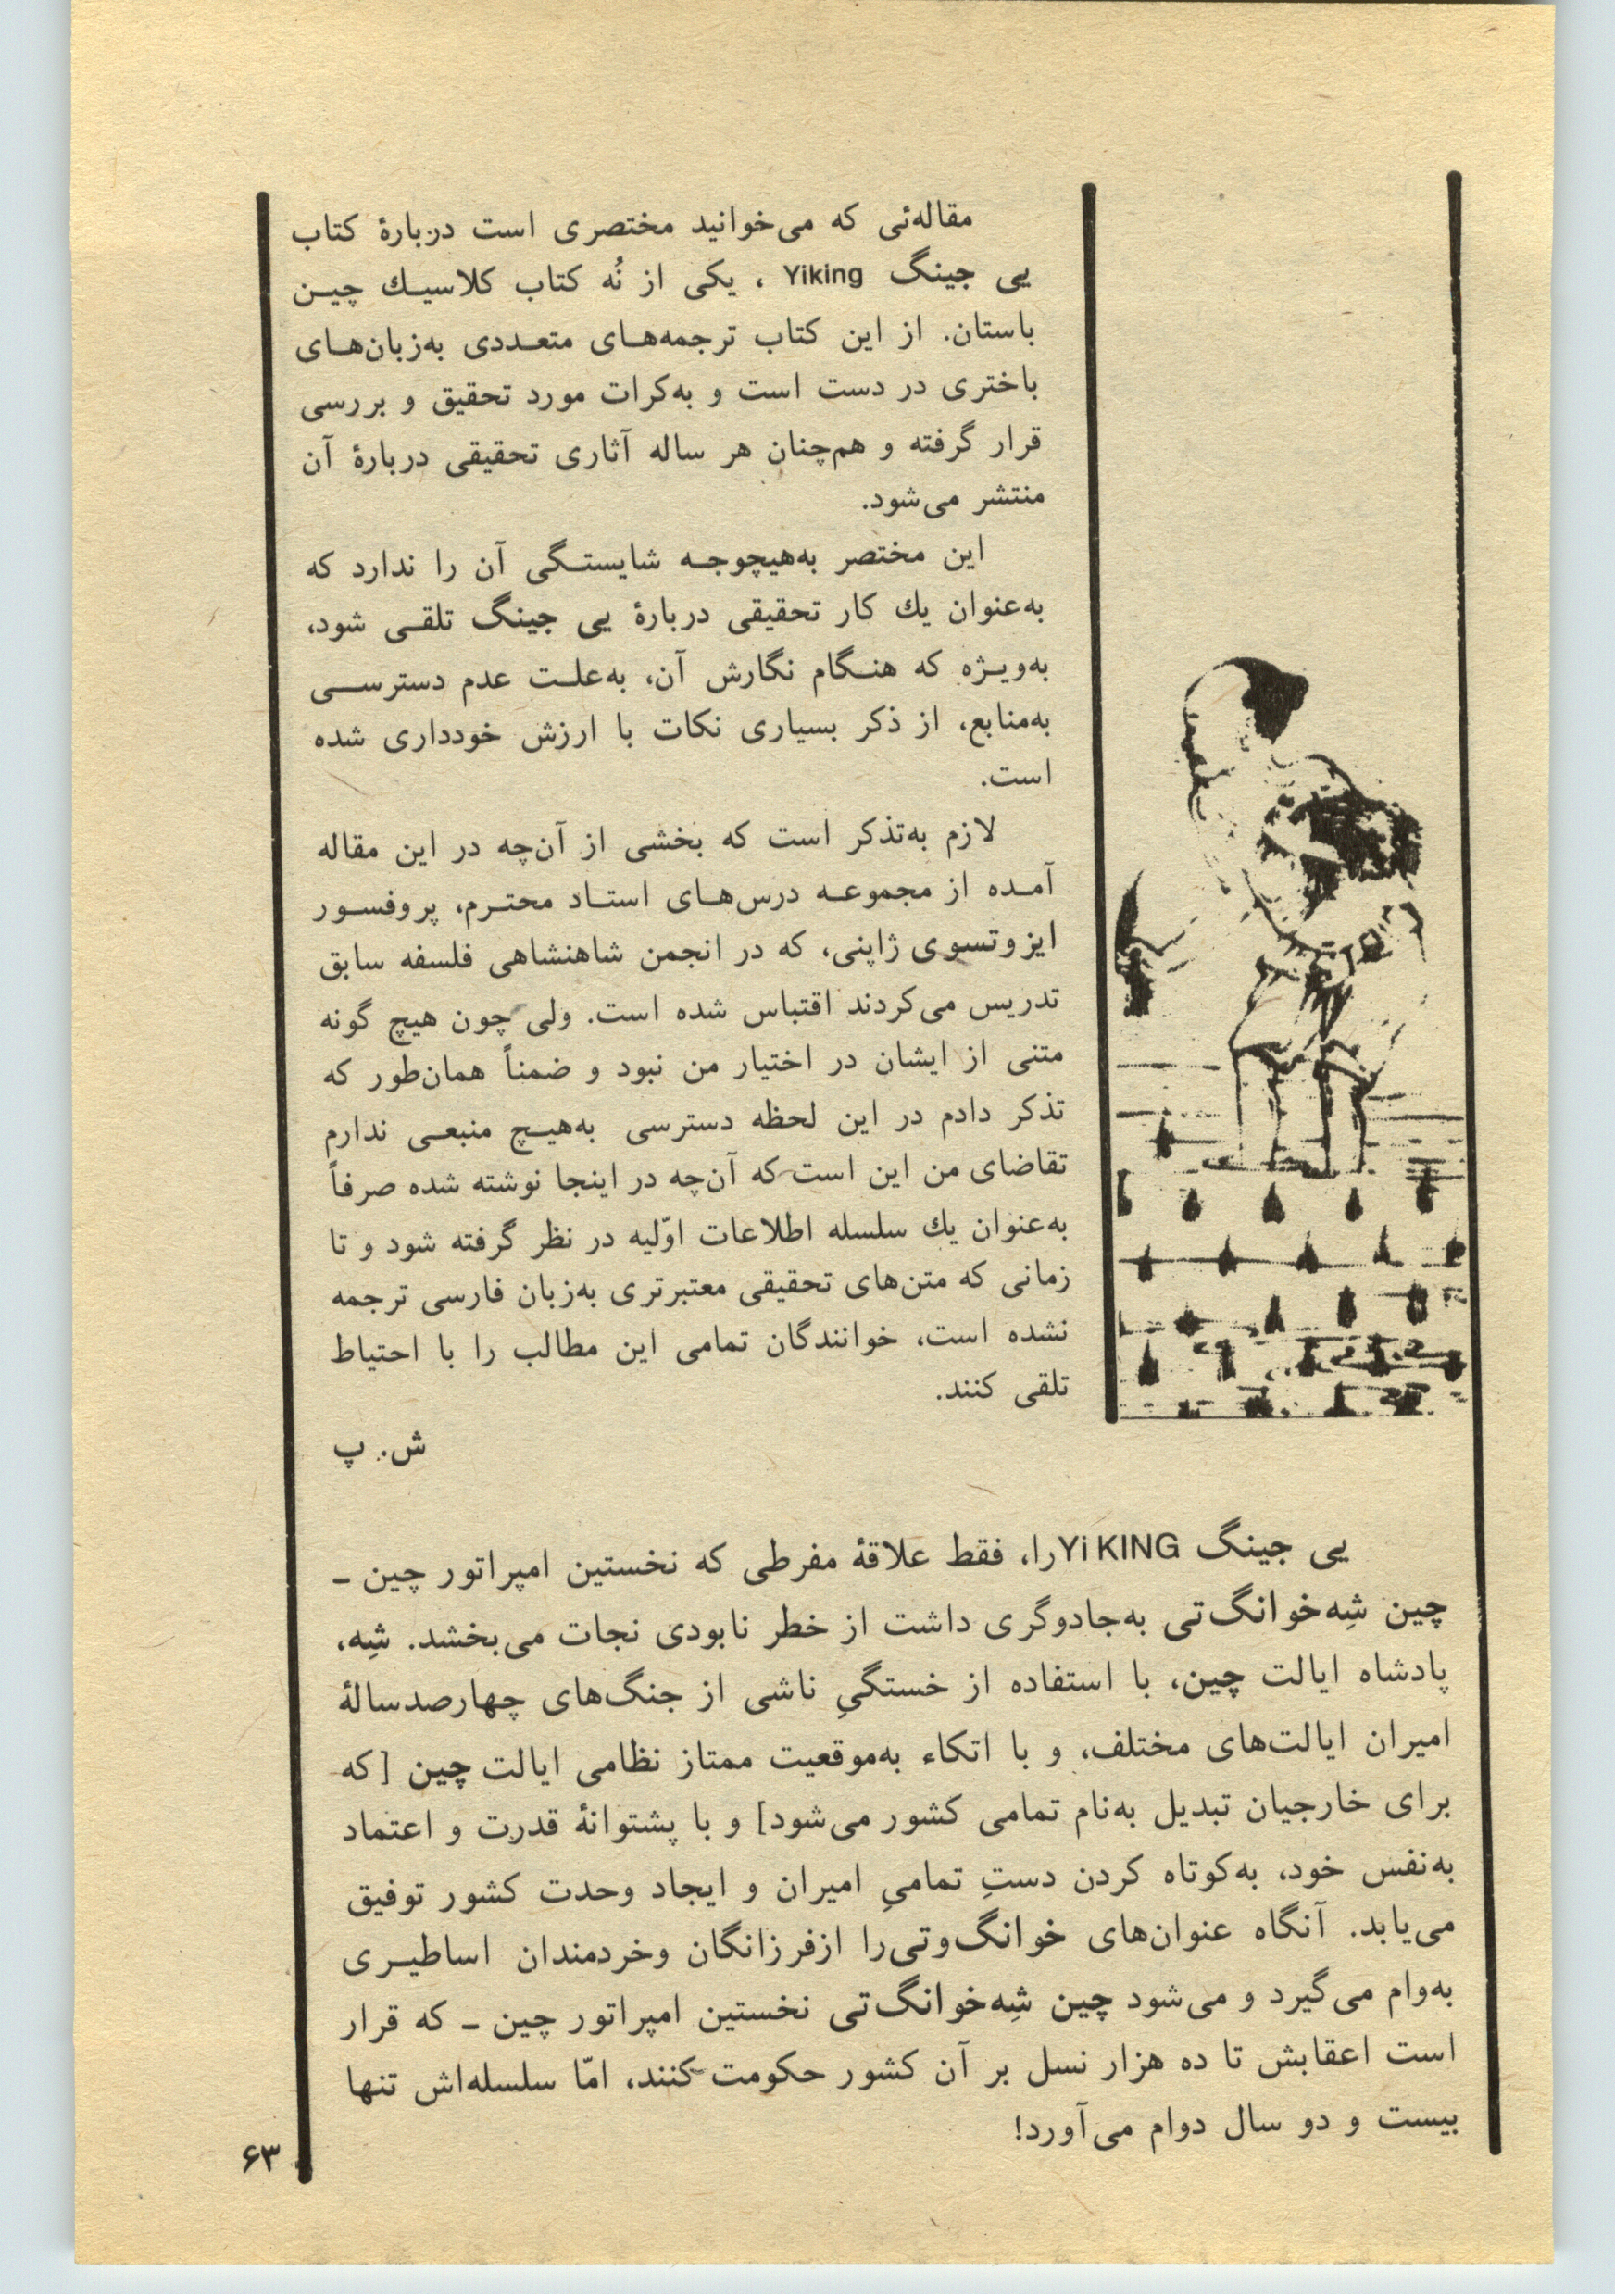 مقاله‌ئی که می‌خوانید مختصری است دربارهٔ کتاب
یی جینگ Yiking ، یکی از نُه کتاب کلاسیـك چیـن
باستان. از این کتاب ترجمه‌هـای متعـددی به‌زبان‌هـای
باختری در دست است و به‌کرات مورد تحقیق و بررسی
قرار گرفته و هم‌چنان هر ساله آثاری تحقیقی دربارهٔ آن
منتشر می‌شود.
این مختصر به‌هیچوجـه شایستـگی آن را ندارد که
به‌عنوان یك کار تحقیقی دربارهٔ یی جینگ تلقـی شود،
به‌ویـژه که هنـگام نگارش آن، به‌علـت عدم دسترسـی
به‌منابع، از ذکر بسیاری نکات با ارزش خودداری شده
است.
لازم به‌تذکر است که بخشی از آن‌چه در این مقاله
آمـده از مجموعـه درس‌هـای استـاد محتـرم، پروفسـور
ایزوتسوی ژاپنی، که در انجمن شاهنشاهی فلسفه سابق
تدریس می‌کردند اقتباس شده است. ولی چون هیچ گونه
متنی از ایشان در اختیار من نبود و ضمناً همان‌طور که
تذکر دادم در این لحظه دسترسی به‌هیـچ منبعـی ندارم
تقاضای من این است که آن‌چه در اینجا نوشته شده صرفاً
به‌عنوان یك سلسله اطلاعات اوّلیه در نظر گرفته شود و تا
زمانی که متن‌های تحقیقی معتبرتری به‌زبان فارسی ترجمه
نشده است، خوانندگان تمامی این مطالب را با احتیاط
تلقی کنند.
ش. پ
یی جینگ Yi KING را، فقط علاقهٔ مفرطی که نخستین امپراتور چین ـ
چین شِه‌خوانگ‌تی به‌جادوگری داشت از خطر نابودی نجات می‌بخشد. شِه،
پادشاه ایالت چین، با استفاده از خستگیِ ناشی از جنگ‌های چهارصدسالهٔ
امیران ایالت‌های مختلف، و با اتکاء به‌موقعیت ممتاز نظامی ایالت چین [که
برای خارجیان تبدیل به‌نام تمامی کشور می‌شود] و با پشتوانهٔ قدرت و اعتماد
به‌نفس خود، به‌کوتاه کردن دستِ تمامیِ امیران و ایجاد وحدت کشور توفیق
می‌یابد. آنگاه عنوان‌های خوانگ‌وتی‌را ازفرزانگان وخردمندان اساطیـری
به‌وام می‌گیرد و می‌شود چین شِه‌خوانگ‌تی نخستین امپراتور چین ـ که قرار
است اعقابش تا ده هزار نسل بر آن کشور حکومت کنند، امّا سلسله‌اش تنها
بیست و دو سال دوام می‌آورد!
۶۳